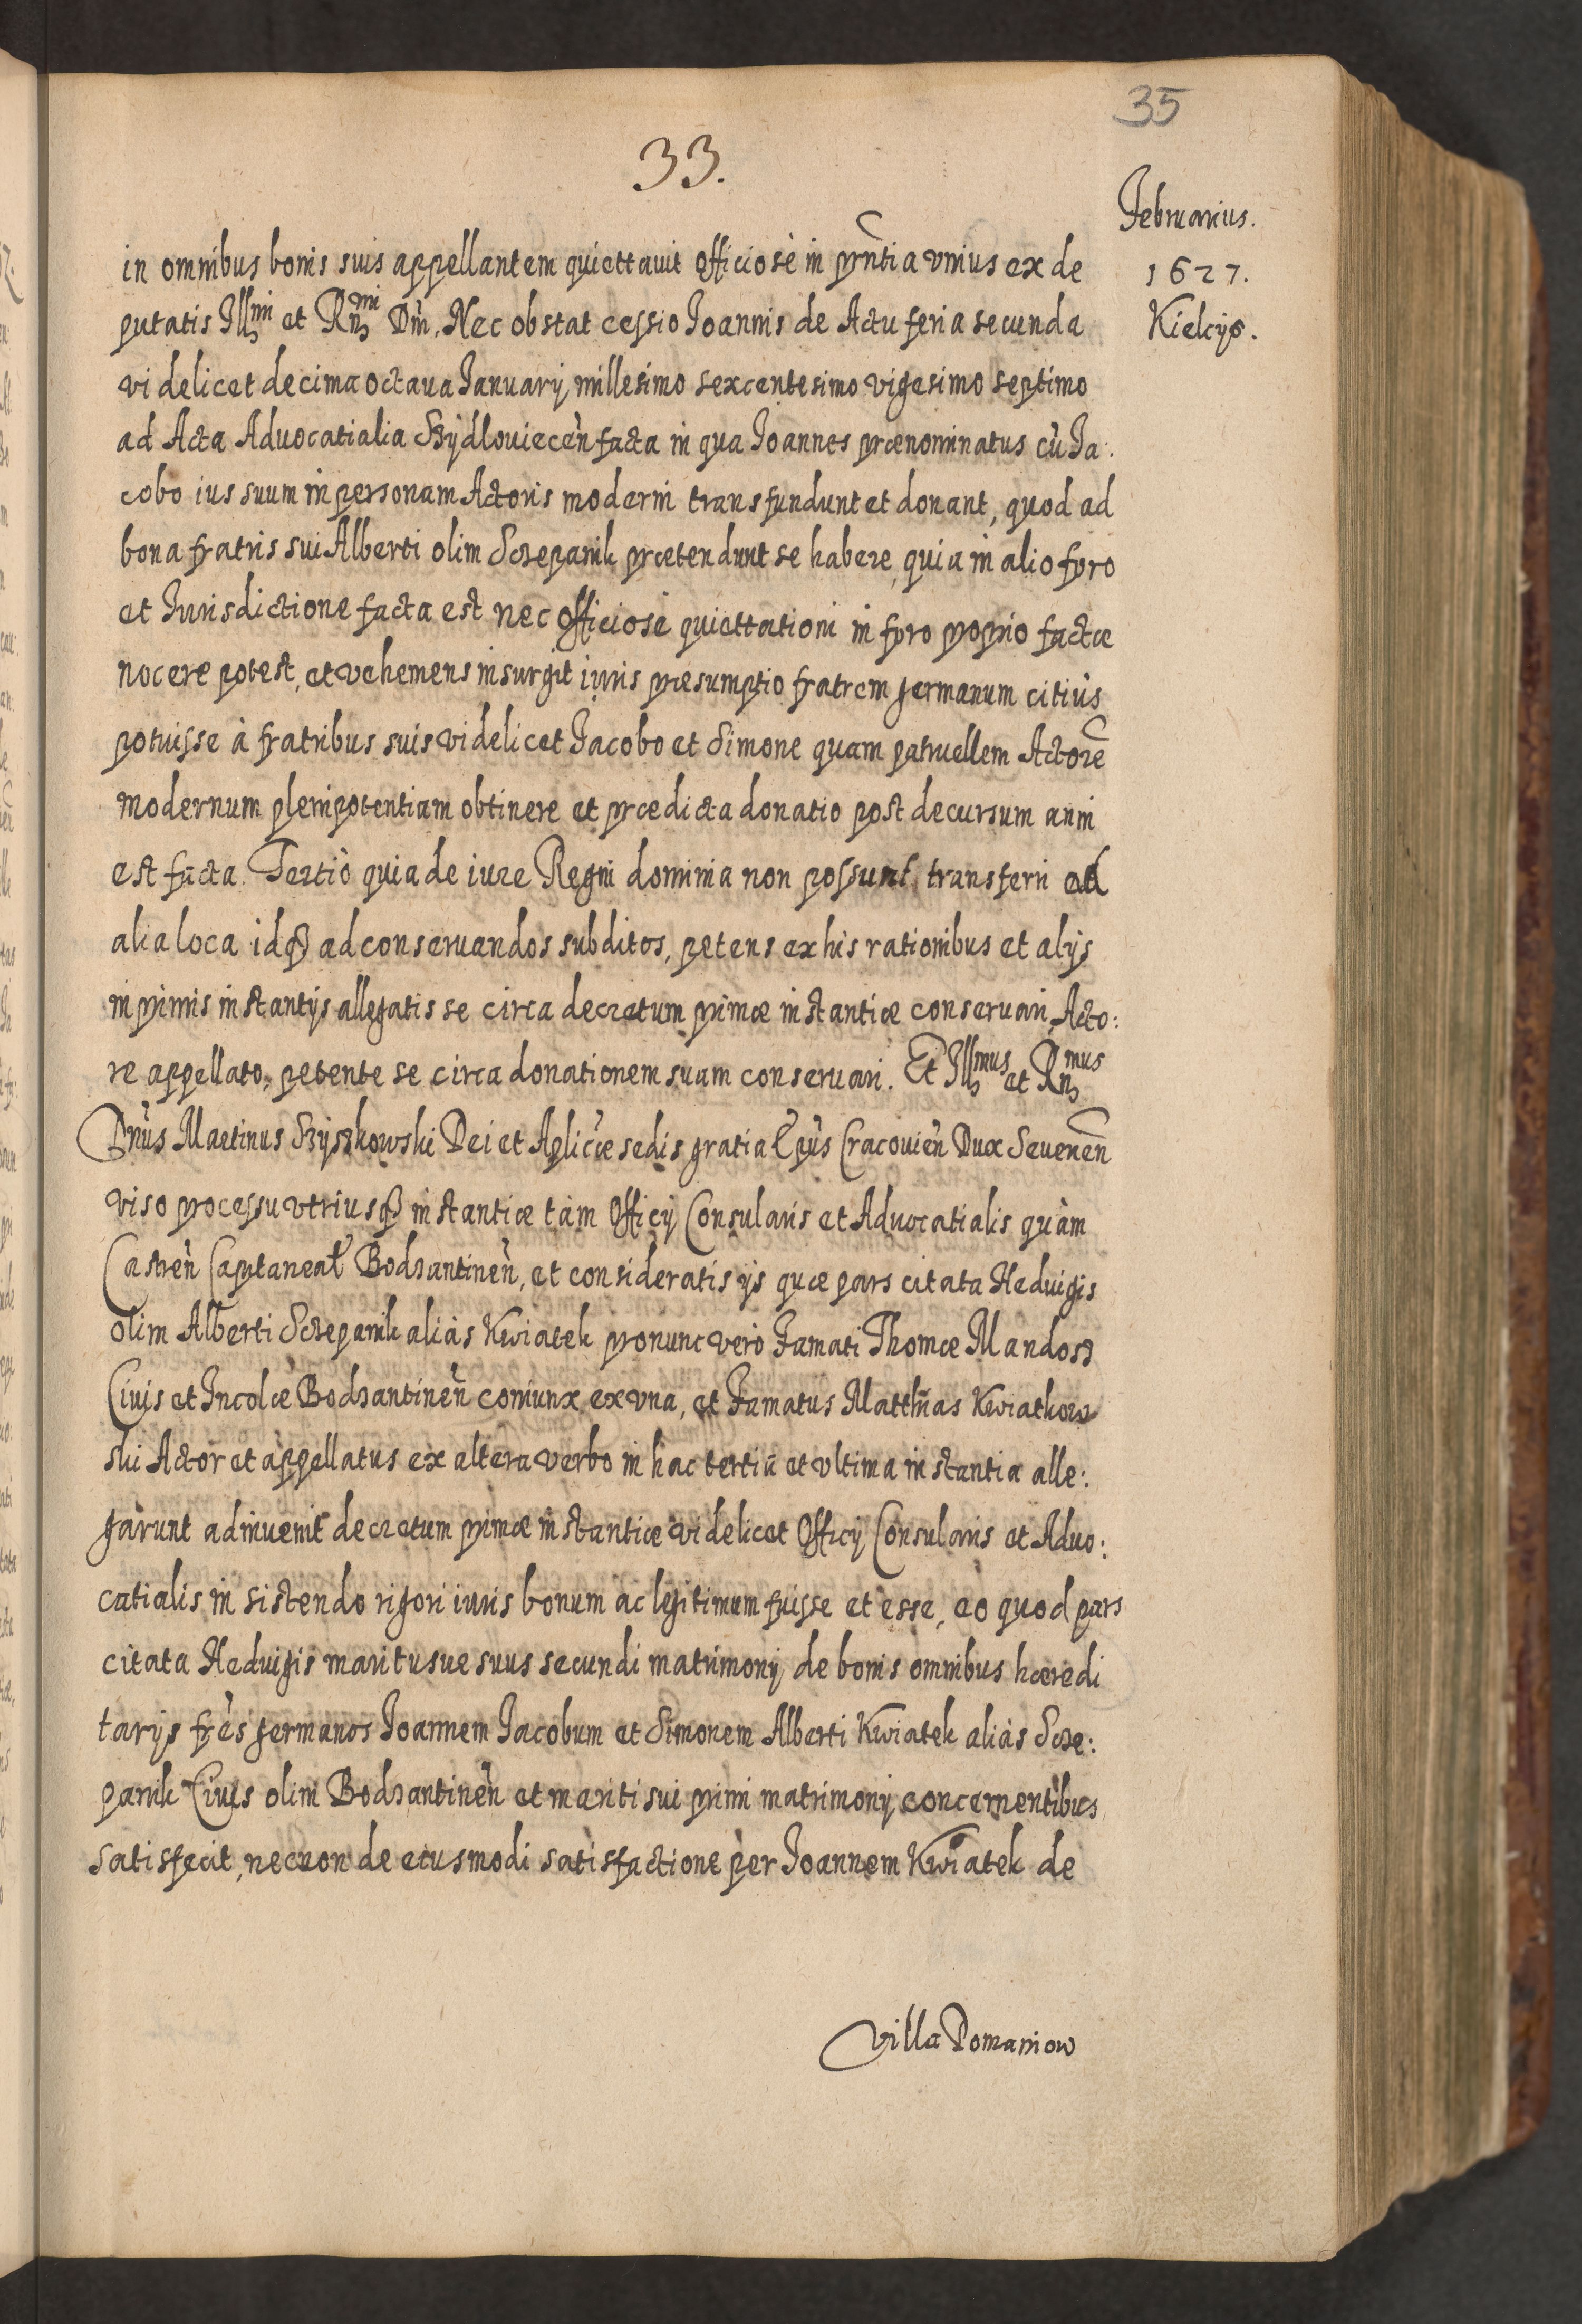 35
33.
Februarius.
1627.
Kielcijs.
in omnibus bonis suis appellantem quiettauit officiosè in pñtia vnius ex de
putatis Illmi et Rndmi Dni. Nec obstat cessio Ioannis de Actu feria secunda
videlicet decima octaua Ianuarij millesimo sexcentesimo vigesimo septimo
ad Acta Aduocatialia Szydlouiecen̈ facta in qua Ioannes prænominatus cù Ia:
cobo ius suum in personam Actoris moderni transfundunt et donant, quod ad
bona fratris sui Alberti olim Sczepanik prætendunt se habere, quia in alio foro
et Iurisdictione facta est nec officiosè quiettationi in foro proprio factæ
nocere potest, et vehemens insurgit iuris præsumptio fratrem germanum citiùs
potuisse à fratribus suis videlicet Iacobo et Simone quam patruellem Actorē
modernum plenipotentiam obtinere et prædicta donatio post decursum anni
est facta. Tertiò quia de iure Regni dominia non possunt transferri ad
alia loca idq3 ad conseruandos subditos, petens ex his rationibus et alijs
in primis instantijs allegatis se circa decretum primæ instantiæ conseruari, Acto:
re appellato, petente se circa donationem suam conseruari. Et Illmus et Rndmus
Dnùs Martinus Szyszkowski Dei et Aplicæ sedis gratia Epùs Cracouien̈ Dux Seueren̄
viso processu vtriusq3 instantiæ tàm Officij Consularis et Aduocatialis quàm
Castren̈ Captaneał Bodzantinen̈, et consideratis ijs quæ pars citata Heduigis
olim Alberti Sczepanik aliàs Kwiatek pronunc verò Famati Thomæ Mandosz
Ciuis et Incolæ Bodzantinen̈ coniunx ex vna, et Famatus Matthias Kwiatkow
ski Actor et appellatus ex altera verbo in hac tertia et vltima instantia alle:
garunt adinuenit decretum primæ instantiæ videlicet Officij Consularis et Aduo:
catialis in sistendo rigori iuris bonum ac legitimum fuisse et esse, eo quod pars
citata Heduigis maritusue suus secundi matrimonij de bonis omnibus hæredi
tarijs frès germanos Ioannem Iacobum et Simonem Alberti Kwiatek aliàs Scze:
panik Ciuis olim Bodzantinen̈ et mariti sui primi matrimonij concernentibus
satisfecit, necnon de eiusmodi satisfactione per Ioannem Kwiatek de
Villa Domaniow